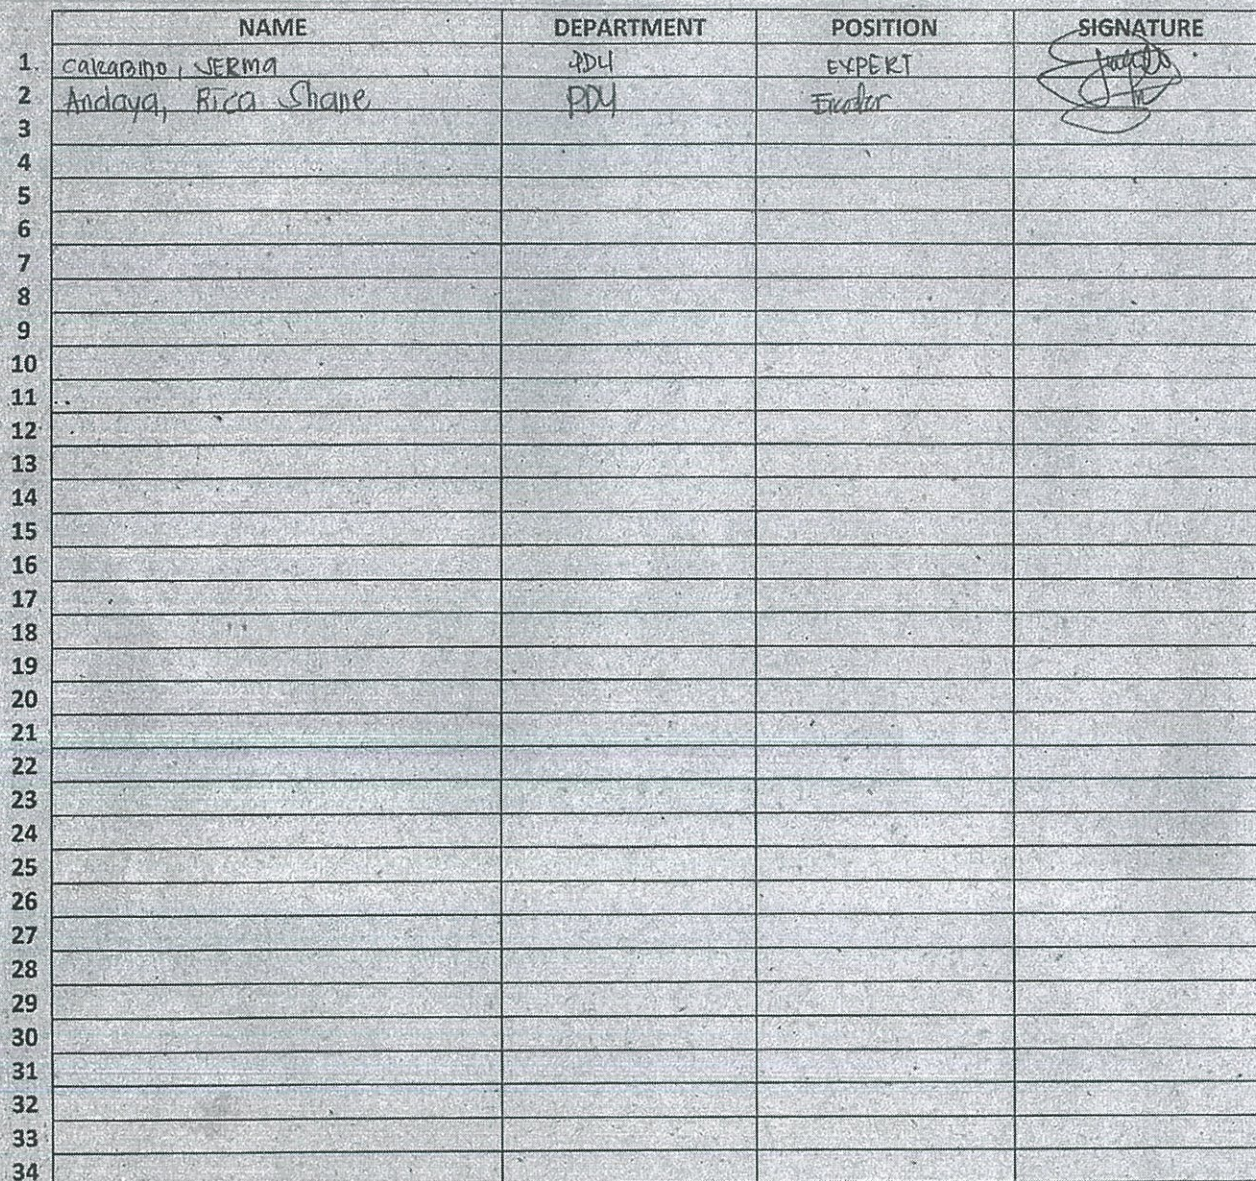 NAME DEPARTMENT POSITION SIGNATURE
1. CALABINO, JERMA PDU EXPERT
2 Andaya, Rica Shane PDU Encoder
3
4
5
6
7
8
9
10
11
12
13
14
15
16
17
18
19
20
21
22
23
24
25
26
27
28
29
30
31
32
33
34